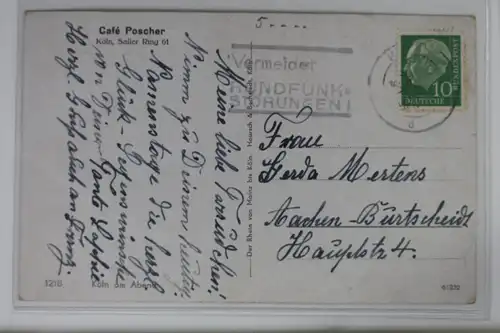 Café Poscher
Köln, Salier Ring 61
5 ....
Vermeidet
RUNDFUNK-
STÖRUNGEN!
DEUTSCHE
BUNDESPOST
10
d
Meine liebe
Nimm zu Deinem heutigen
Namenstage die herzl.
Glück- Segenswünsche
von Deiner Tante
Herzl. Gruß auch an Franz
Frau
Gerda Mertens
Aachen-Burtscheid
Hauptstr. 4.
Der Rhein von Mainz bis Köln.
121B
Köln am Abend